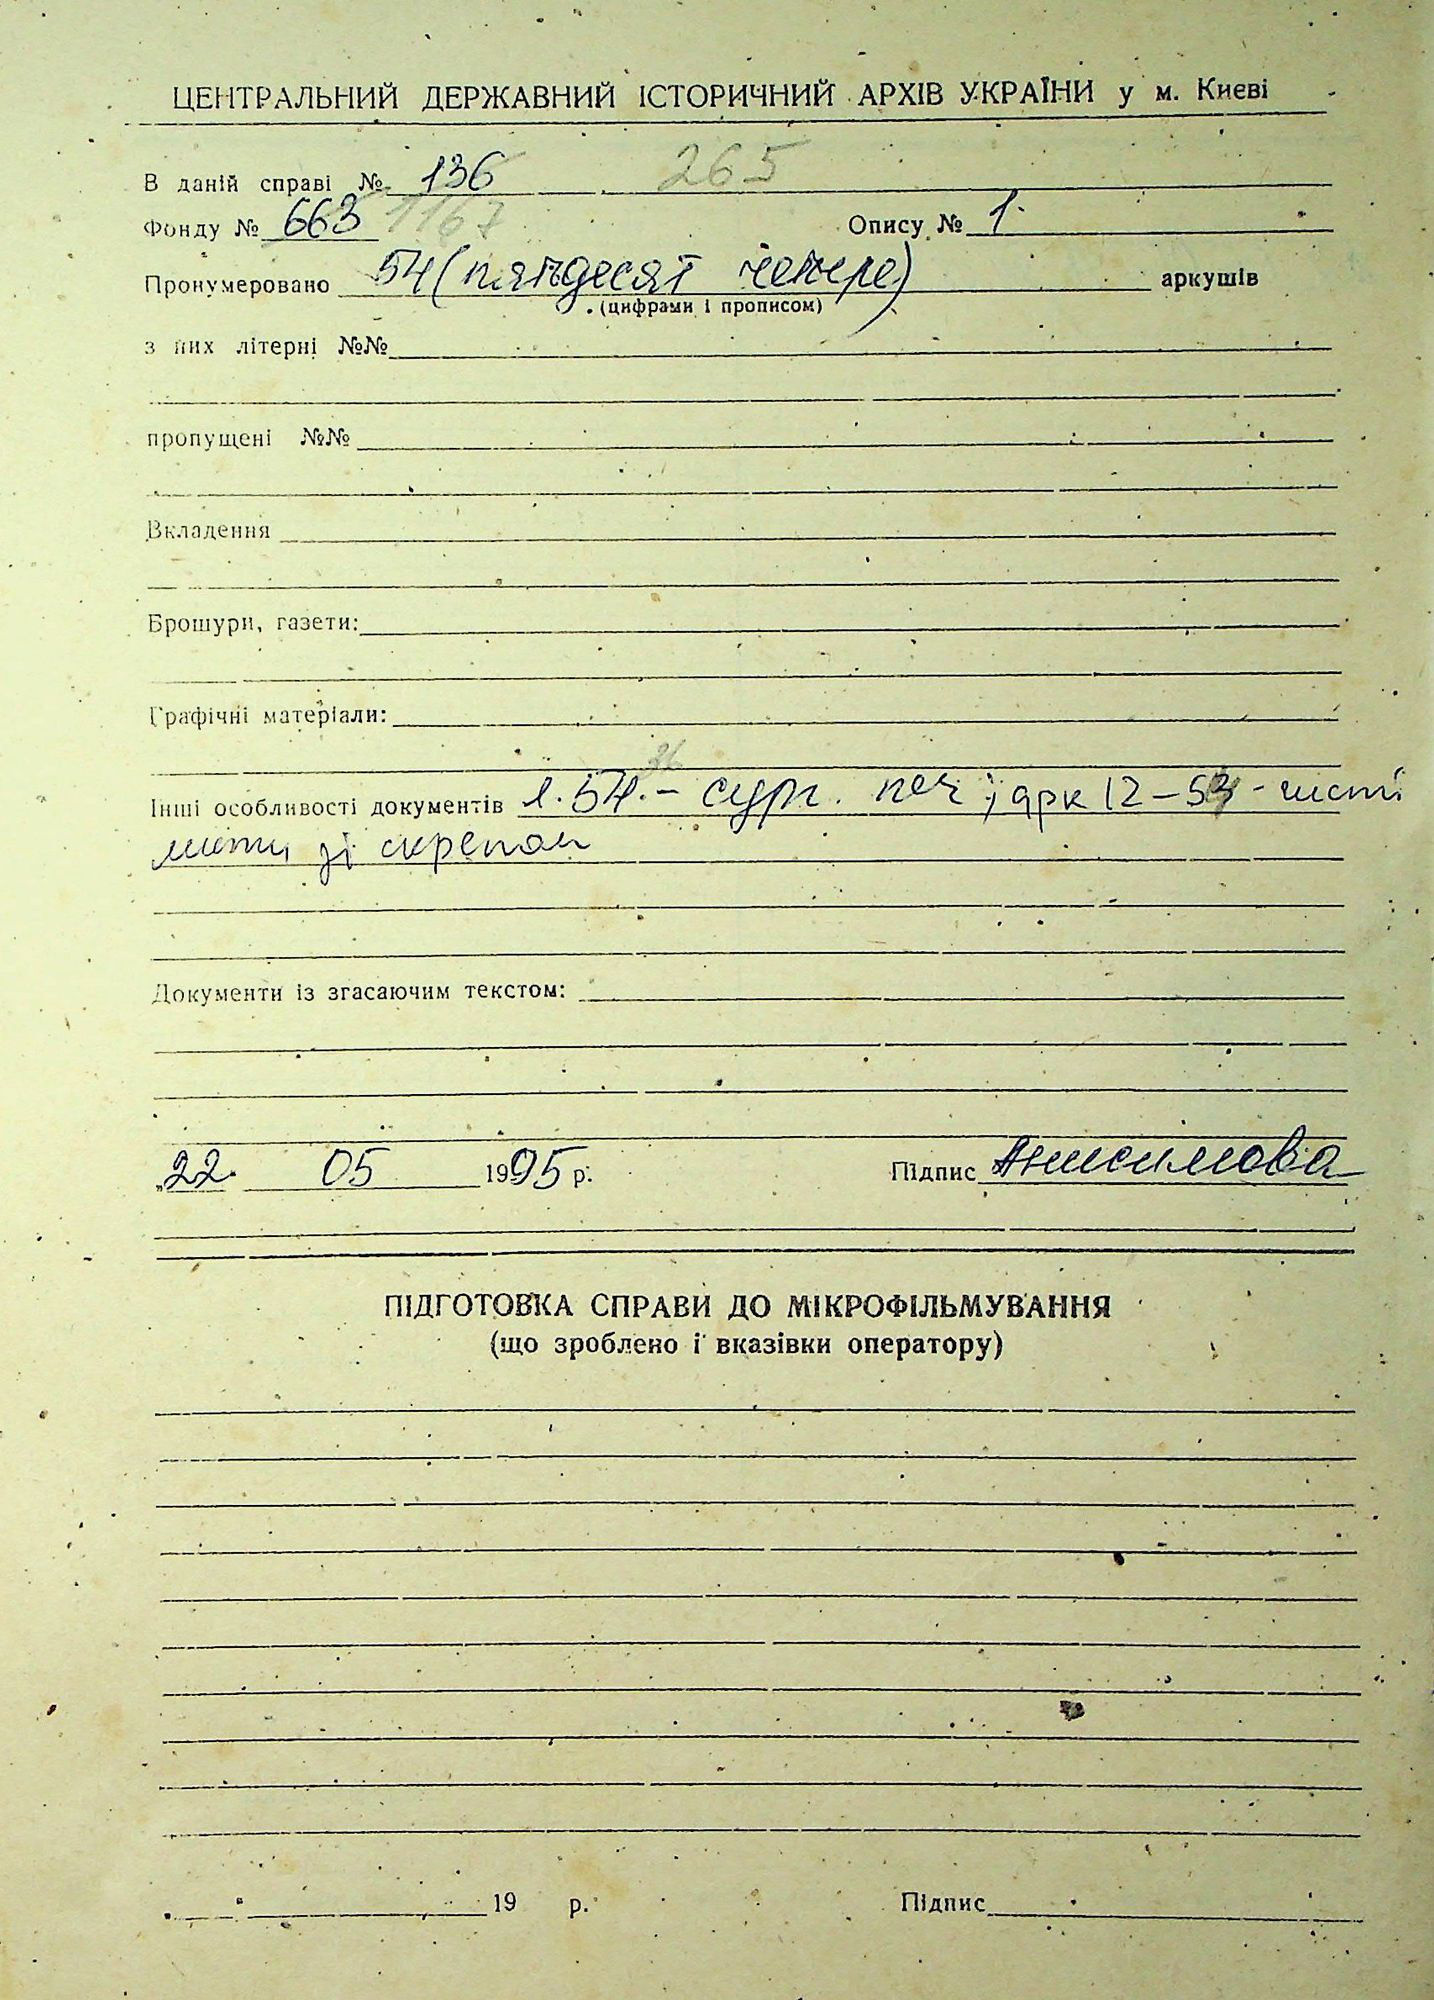 ЦЕНТРАЛЬНИЙ ДЕРЖАВНИЙ ІСТОРИЧНИЙ АРХІВ УКРАЇНИ у м. Києві
В даній справі № 136 265
Фонду № 663 1167 Опису № 1
Пронумеровано 54 (пятдесят чотире) аркушів
(цифрами і прописом)
з них літерні №№
пропущені №№
Вкладення
Брошури, газети:
Графічні матеріали:
36
Інші особливості документів л. 54. – сург. печ; арк 12–53 - чисті
листи зі скрепом
Документи із згасаючим текстом:
„22. 05 1995 р. Підпис Анисимова
ПІДГОТОВКА СПРАВИ ДО МІКРОФІЛЬМУВАННЯ
(що зроблено і вказівки оператору)
19 р. Підпис